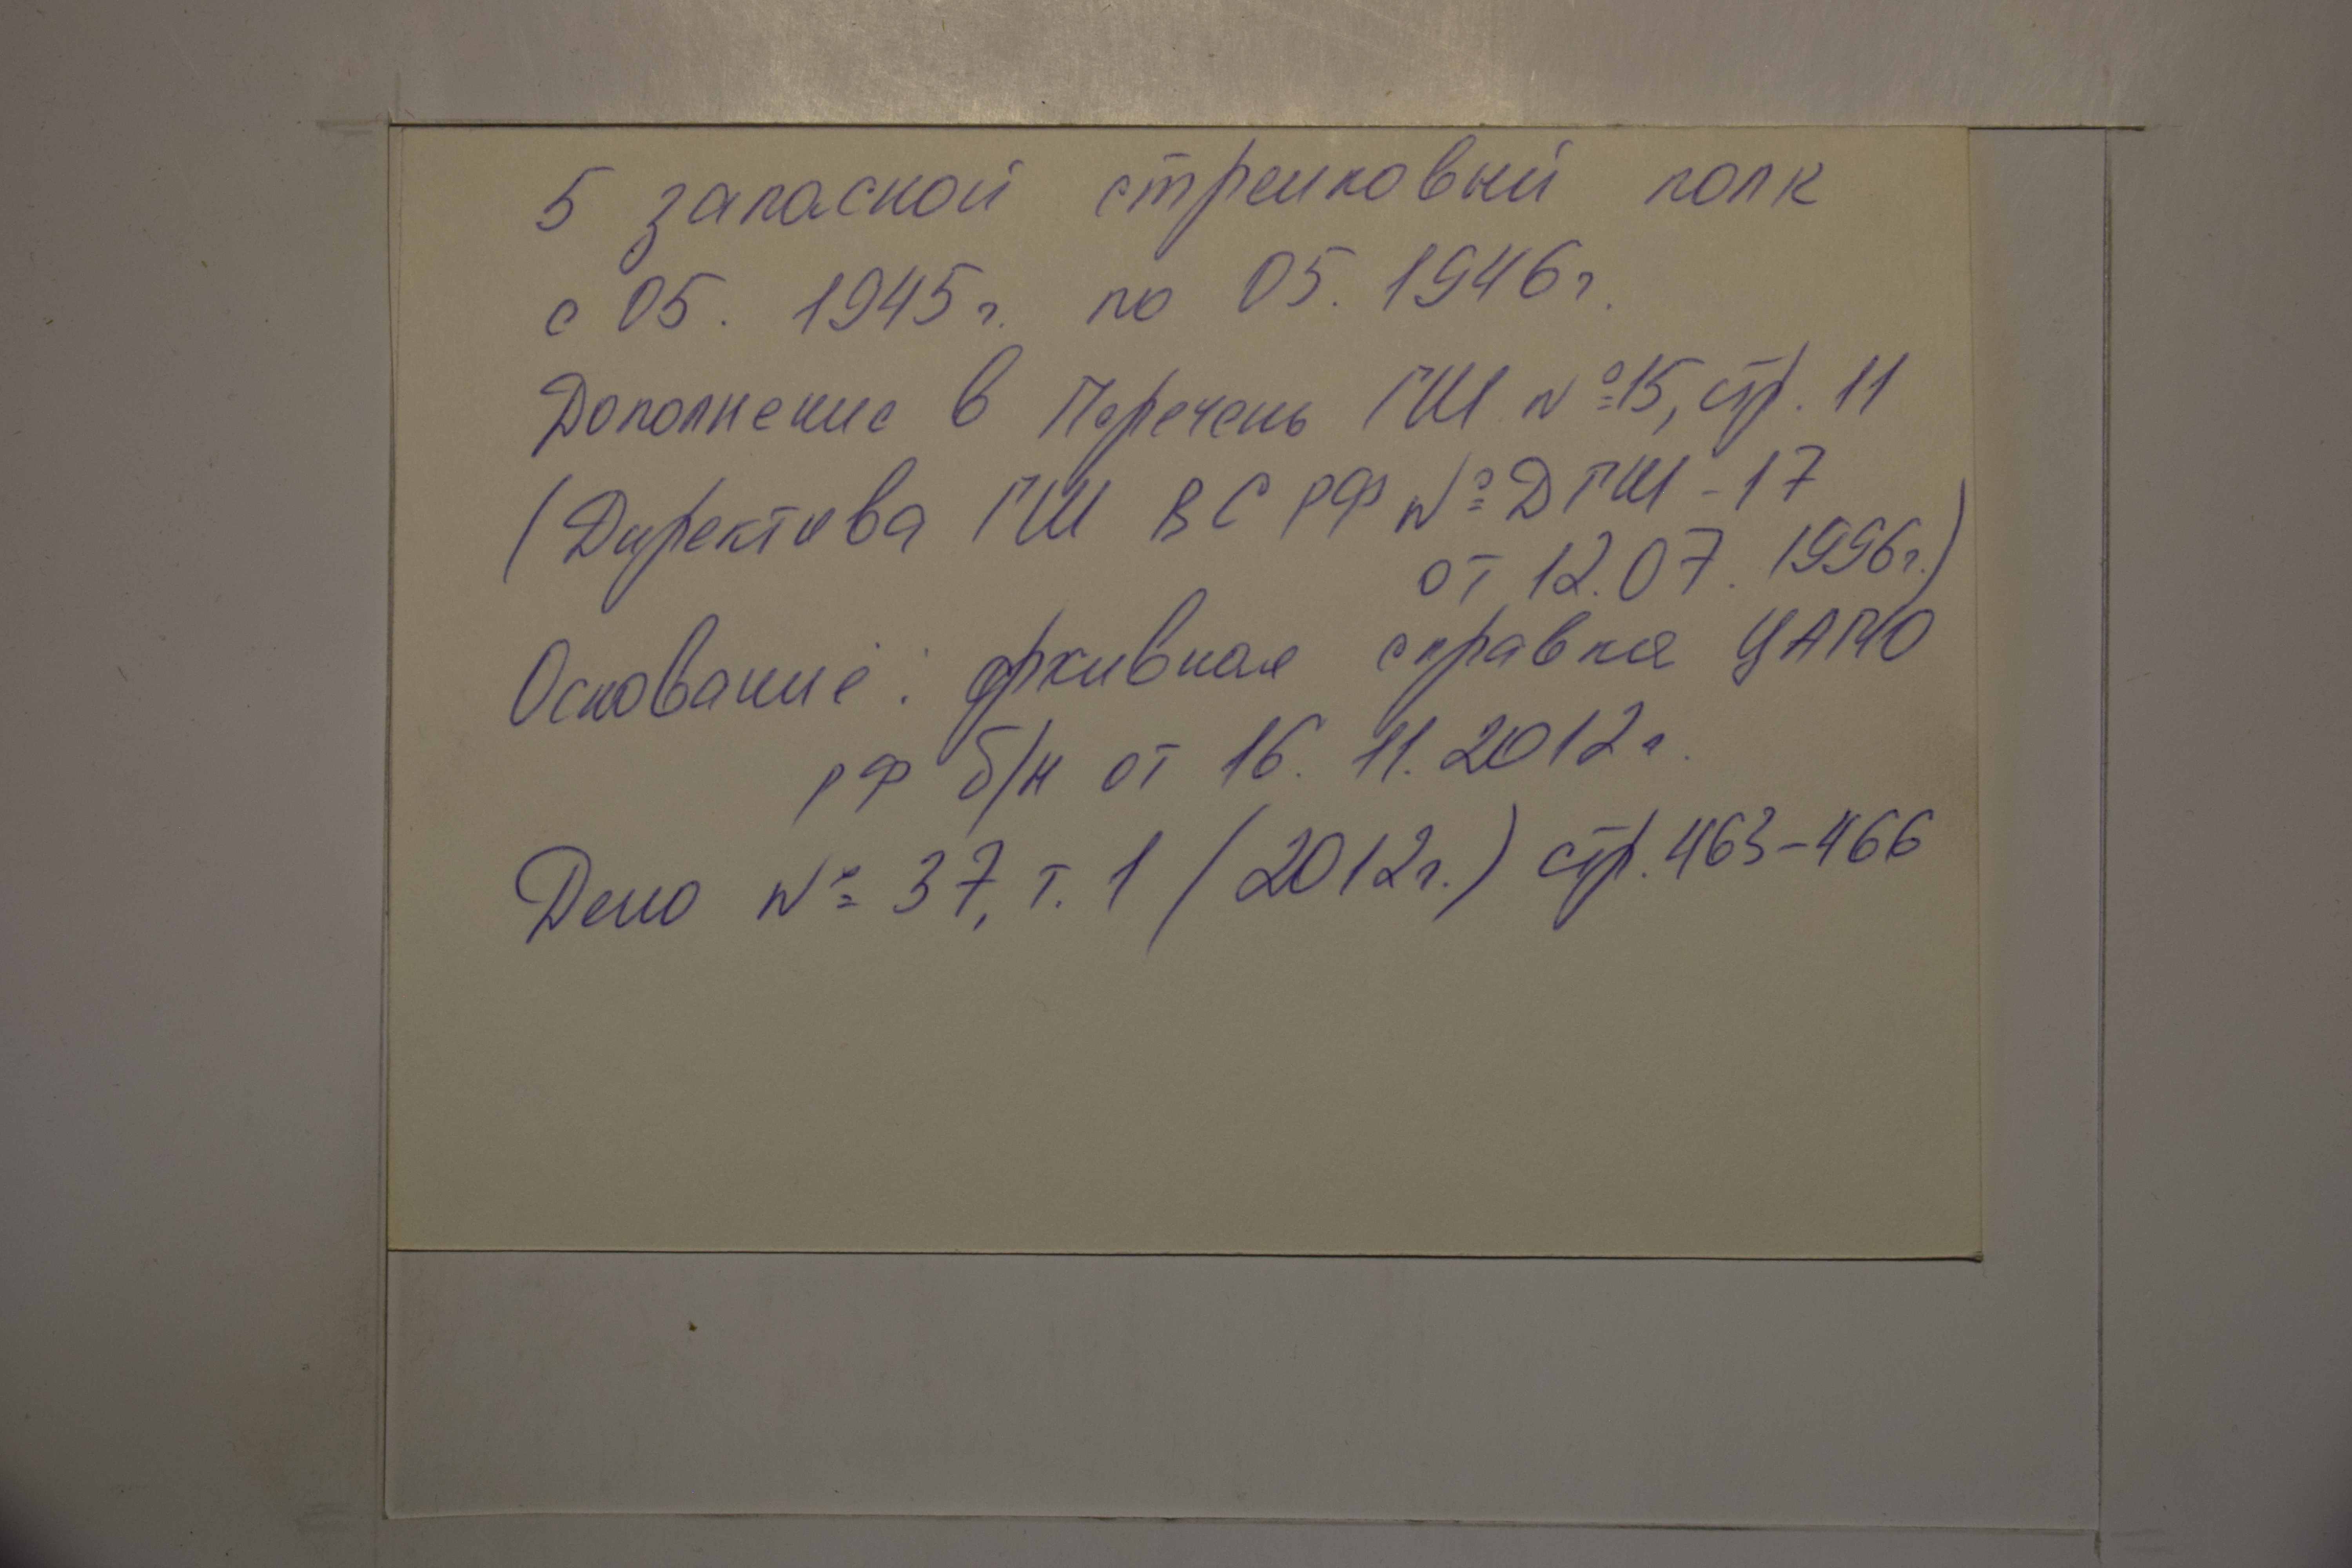 5 запасной стрелковый полк
с 05. 1945г. по 05. 1946г.
Дополнение в Перечень ГШ №15, стр. 11
(Директива ГШ ВС РФ № ДГШ-17
от 12.07. 1996г.)
Основание: архивная справка ЦАМО
РФ б/н от 16. 11. 2012г.
Дело № 37, т. 1 (2012г.) стр. 463-466